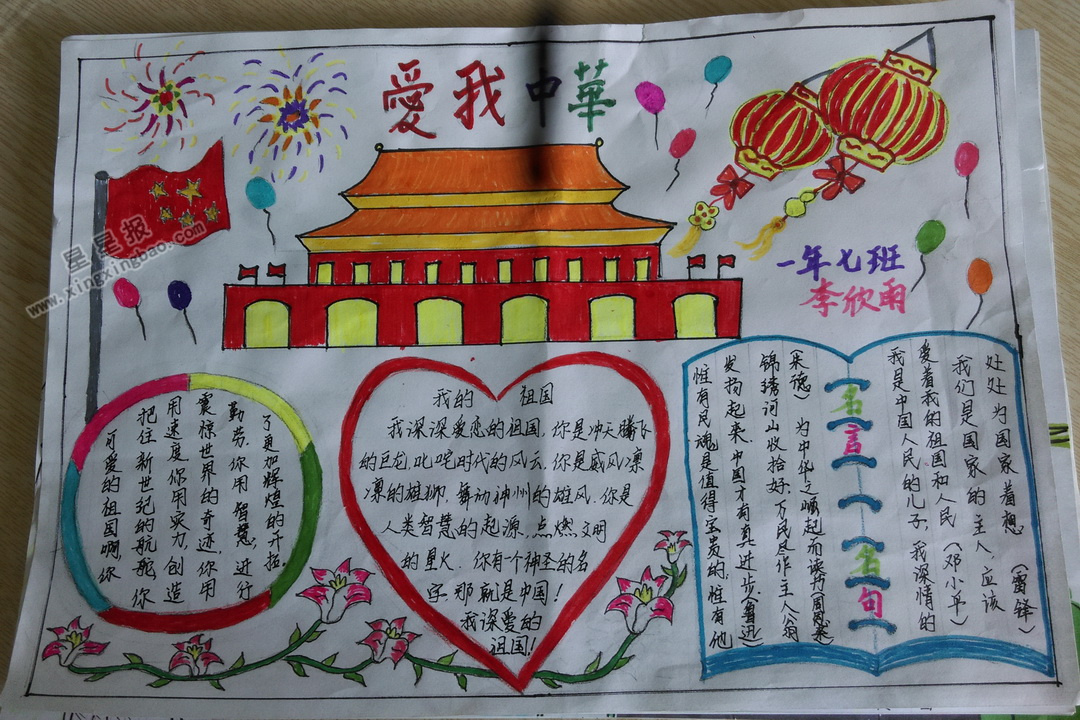 愛我中華
一年七班
李欣雨
星星报
www.xingxingbao.com
可爱的祖国啊,你
把住新世纪的航舵,你
用速度,你用实力,创造
震惊世界的奇迹,你用
勤劳、你用智慧,进行
了更加辉煌的开拓。
我的 祖国
我深深爱恋的祖国,你是冲天腾飞
的巨龙,叱咤时代的风云,你是威风凛
凛的雄狮,舞动神州的雄风,你是
人类智慧的起源,点燃文明
的星火。你有个神圣的名
字,那就是中国!
我深爱的
祖国!
惟有民魂是值得宝贵的,惟有他
发扬起来,中国才有真进步(鲁迅)
锦绣河山收拾好,万民尽作主人翁
朱德) 为中华之崛起而读书(周恩来)
名言名句
我是中国人民的儿子,我深情的
爱着我的祖国和人民(邓小平)
我们是国家的主人,应该
处处为国家着想(雷锋)